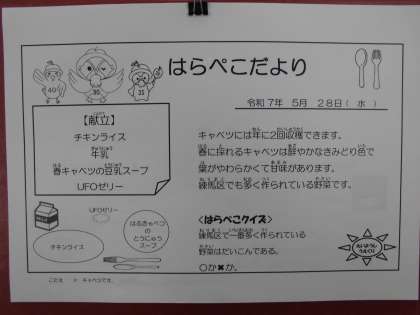 はらぺこだより
令和7年 5月 28日(水)
40 30 35
【献立】
チキンライス
牛乳
春キャベツの豆乳スープ
UFOゼリー
キャベツには年に2回収穫できます。
春に採れるキャベツは鮮やかなきみどり色で
葉がやわらかくて甘味があります。
練馬区でも多く作られている野菜です。
UFOゼリー
チキンライス
はるきゃべつの
とうにゅう
スープ
<はらぺこクイズ>
練馬区で一番多く作られている
野菜はだいこんである。
○か✖か。
こたえ × キャベツです。